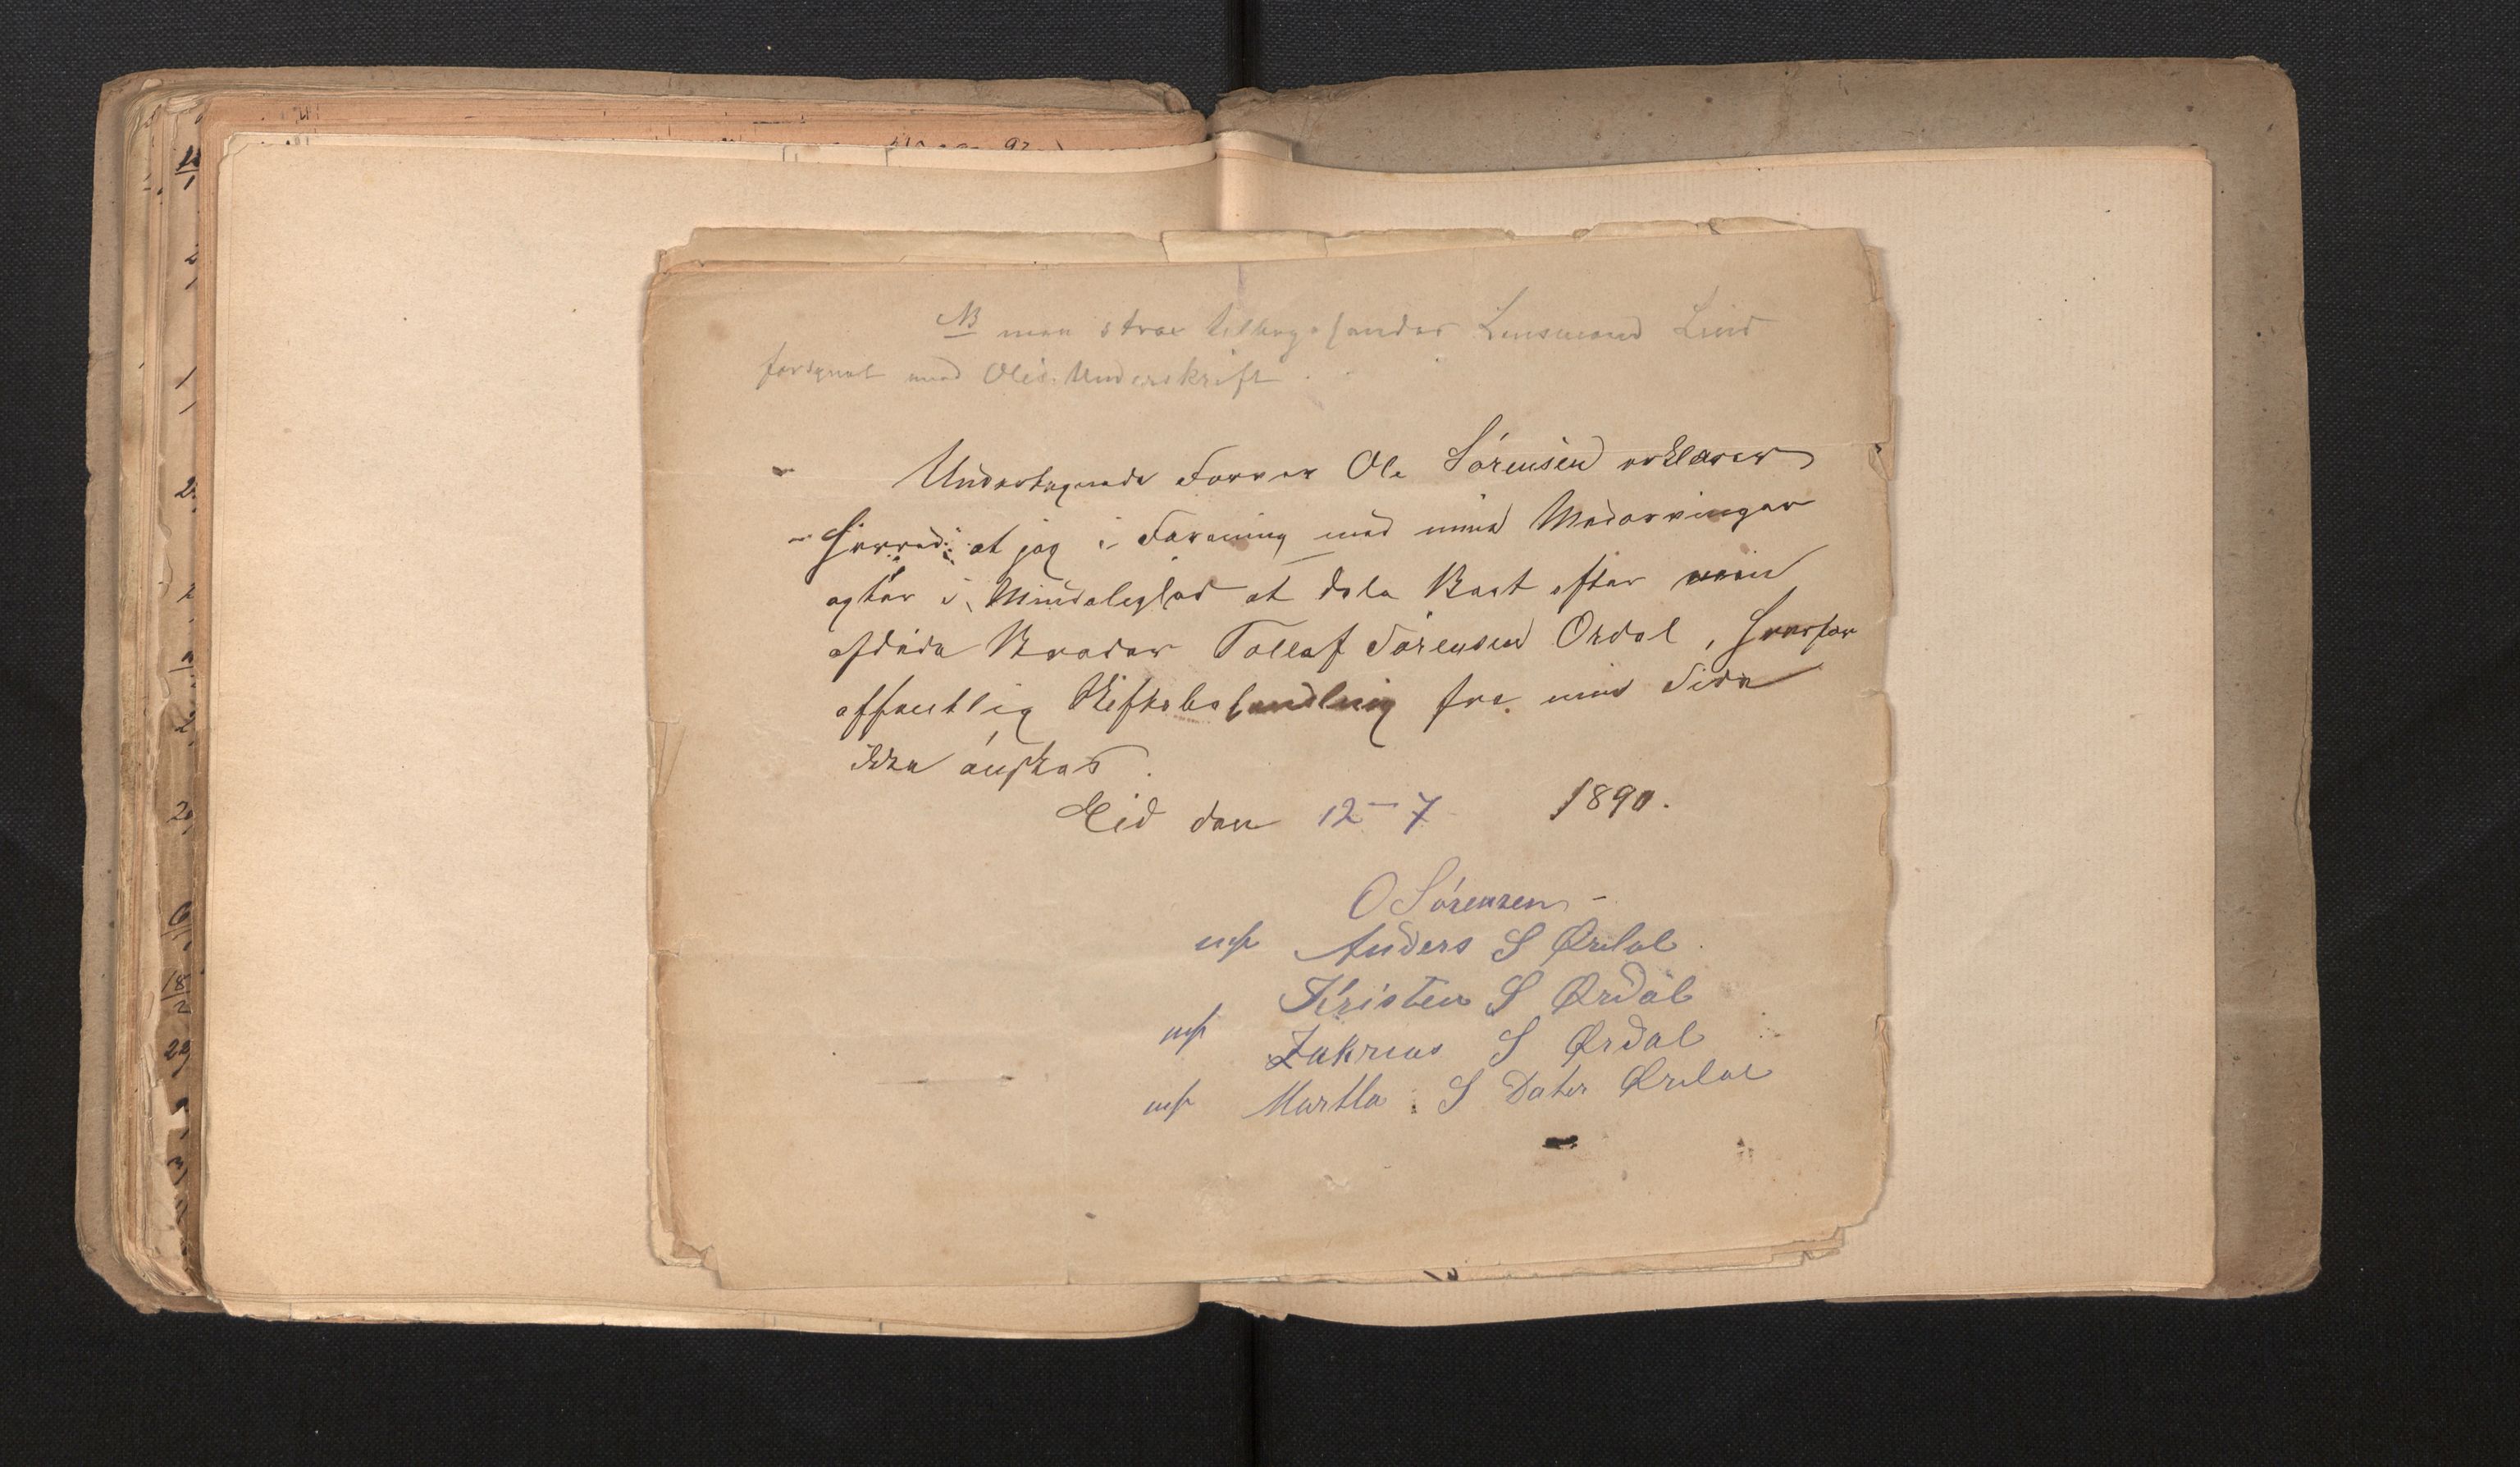 NB man strax tilbagesender Lensmand Lind
forsynet med Oles Underskrift.
Undertegnede Farver Ole Sörensen erklærer
herved: at jeg i Forening med mine Medarvinger
agter i Mindelighed at dele Boet efter min
afdöde Broder Tollef Sörensen Ordal, hvorfor
offentlig Skiftebehandling fra min Side
ikke önskes.
Eid den 12-7 1890.
O Sörensen -
mp Anders S Ørdal.
Kristen S Ørdal
mp Zakrias S Ørdal
mp Martha S Dater Ørdal